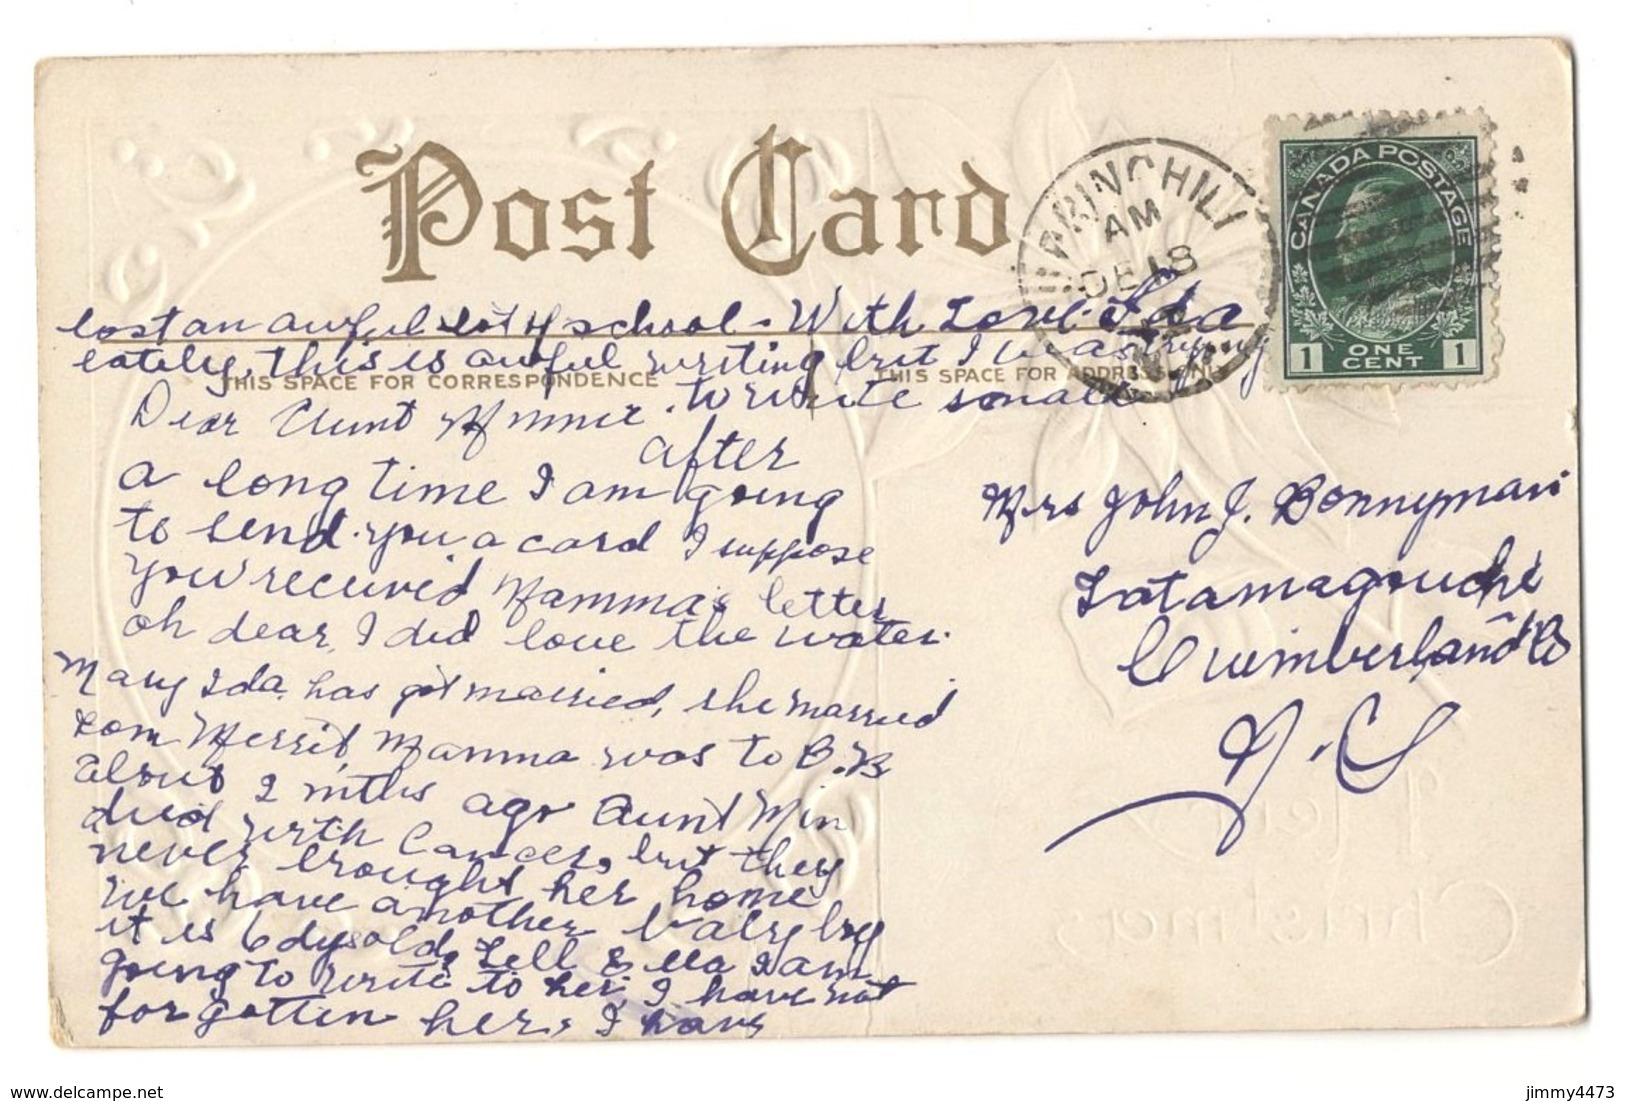 Post Card
BARINCHILI
AM
DE 18
CANADA POSTAGE
1 ONE CENT 1
lost an awful lot of school. With Love. Ida
lately, this is awful writing but I was trying
THIS SPACE FOR CORRESPONDENCE
THIS SPACE FOR ADDRESS ONLY
to write small
Dear Aunt Minnie.
after
a long time I am going
to send you a card I suppose
you received Mamma's letter
oh dear, I did love the water.
Mary Ida has got married, she married
Tom Merrit, Mamma was to B.B
about 2 mths ago Aunt Min
died with Cancer, but they
never brought her home
we have another baby boy
it is 6 dys old, Tell Ella I am
going to write to her, I have not
forgotten her, I have
Mrs John J. Bonnyman
Tatamagouche
Cumberland Co
N.S
A Merry
Christmas
delcampe.net
jimmy4473